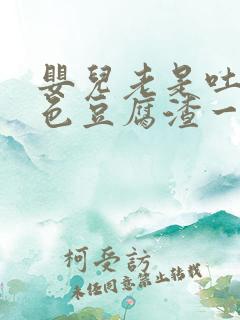 嬰兒老是吐
色豆腐渣一
柯受訪
未經同意禁止轉載